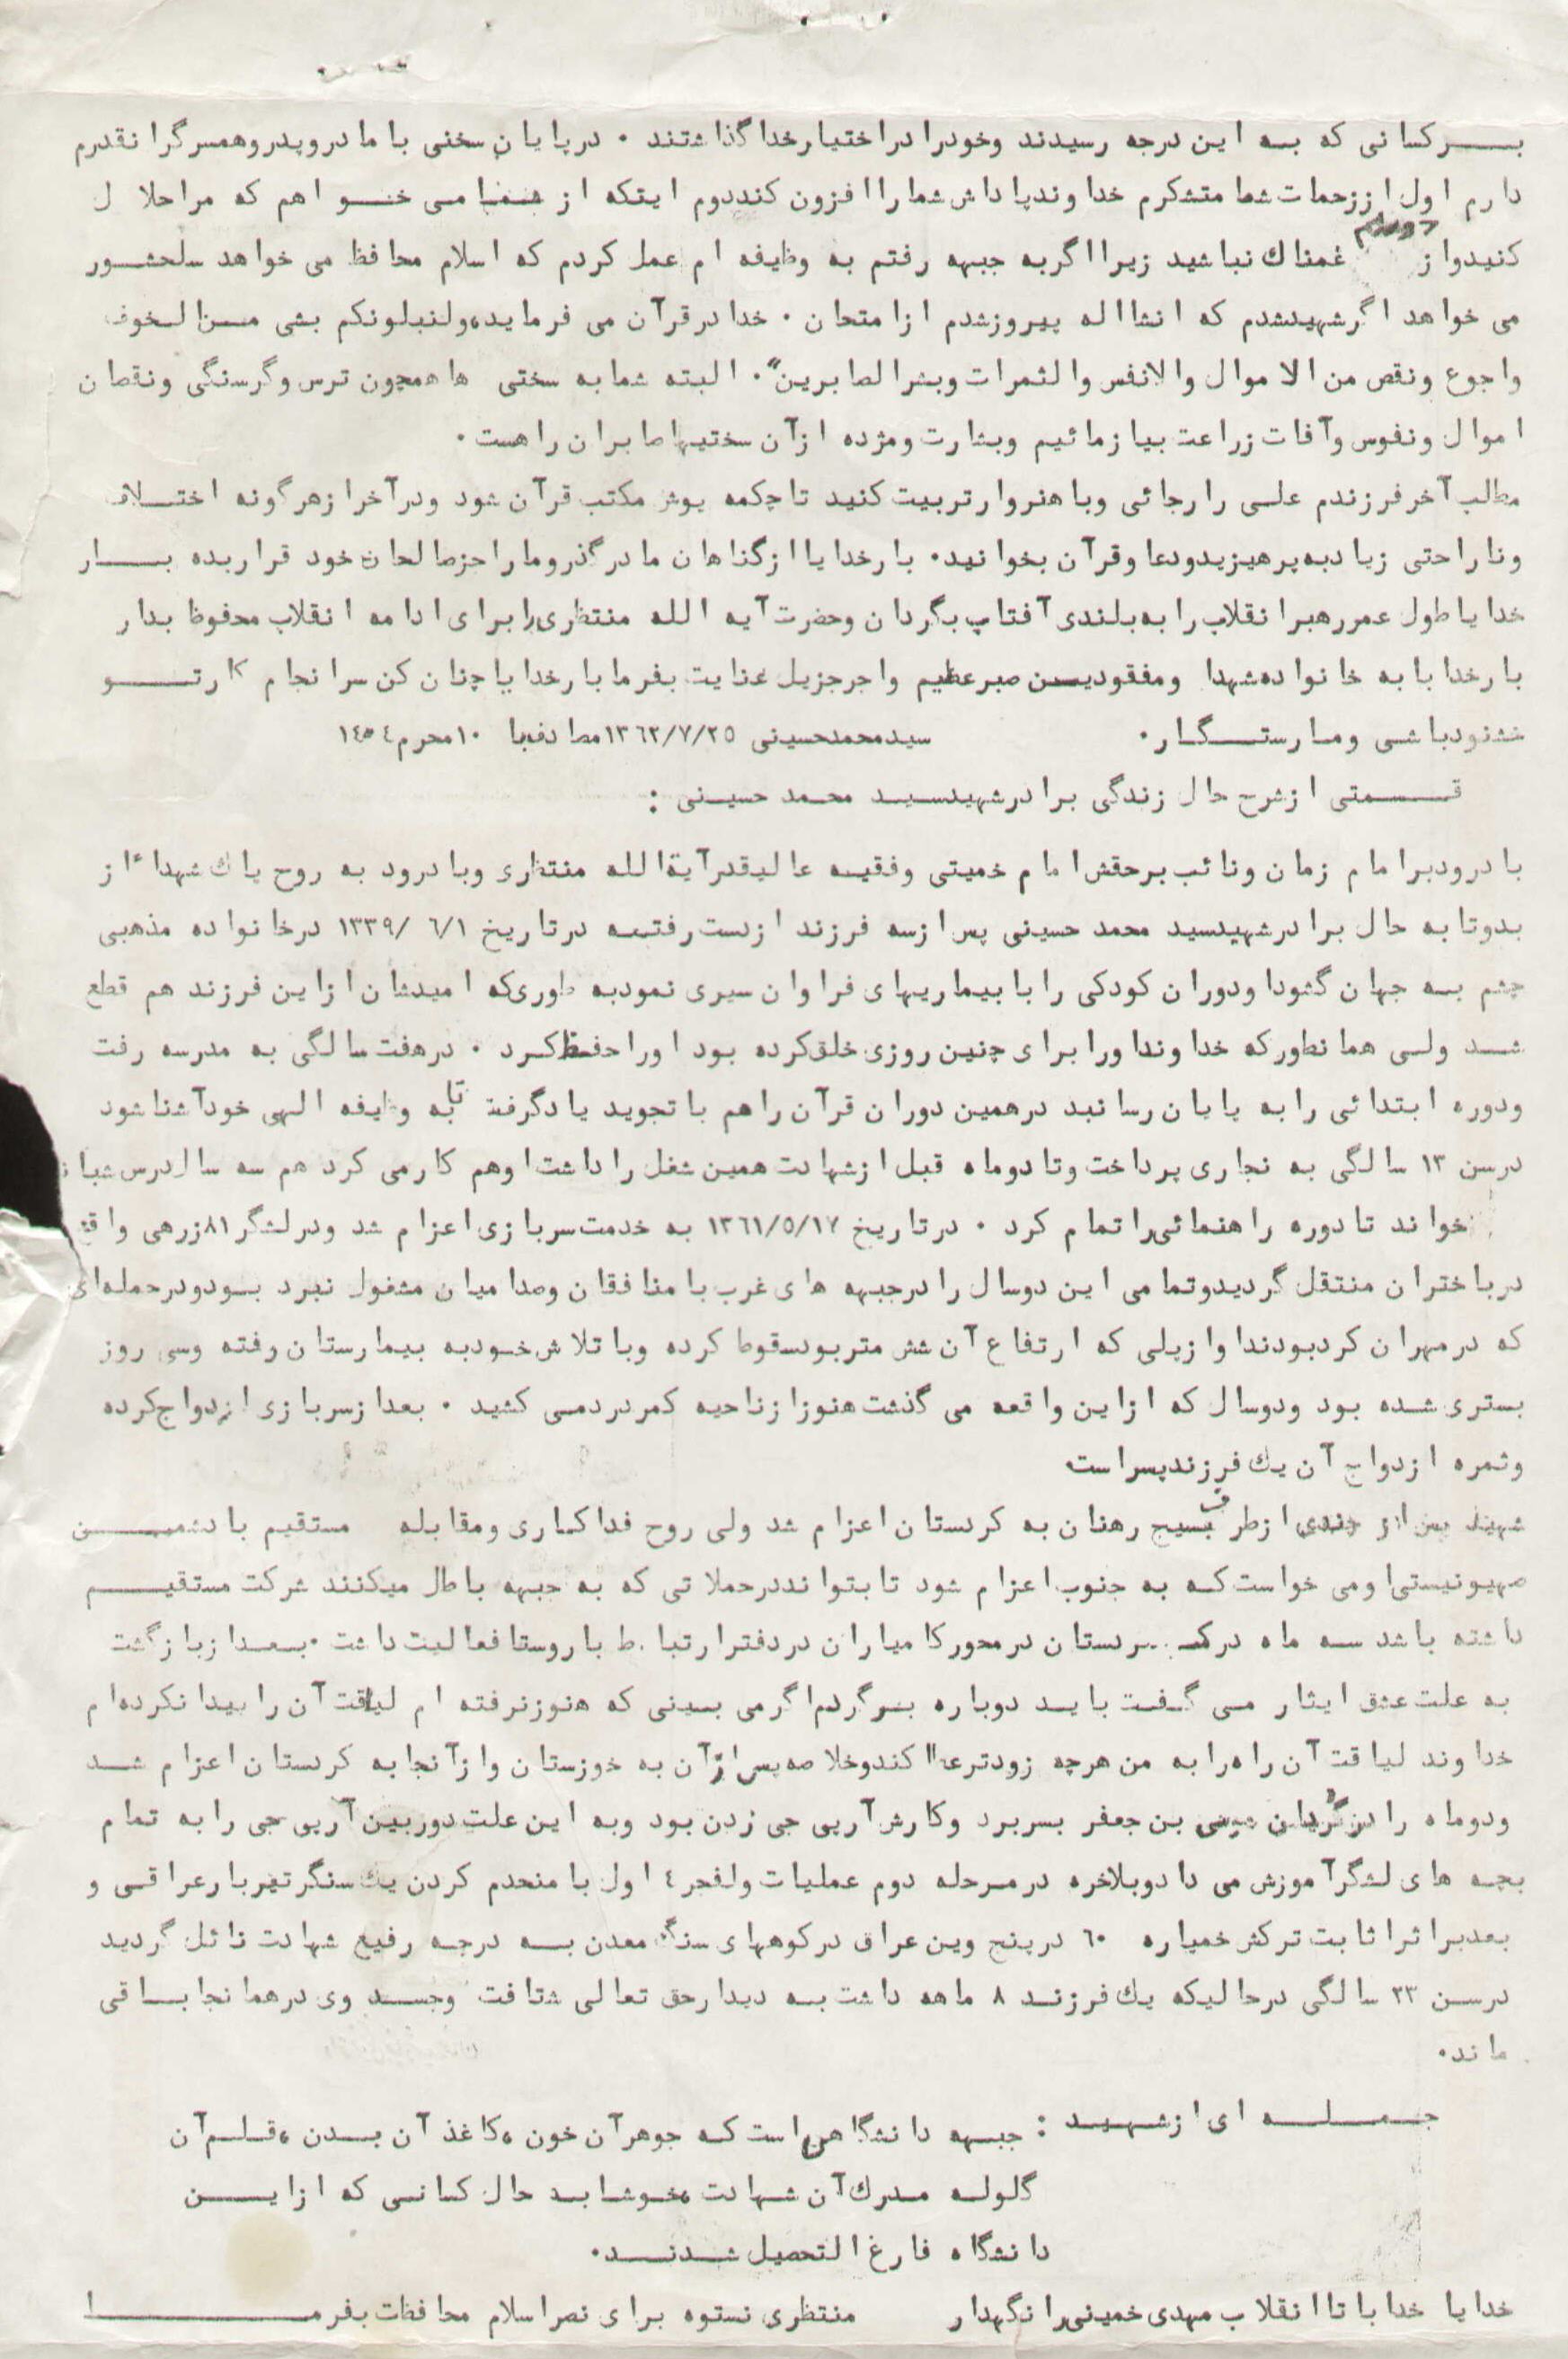 بر کسانی که به این درجه رسیدند وخودرا دراختیارخدا گذاشتند . درپایان سخنی با مادروپدروهمسرگرانقدرم
دارم اول اززحمات شما متشکرم خداوندپاداش شمارا افزون کنددوم اینکه از شما می خواهم که مراحلال
کنیدواز دوریم غمناك نباشید زیرااگربه جبهه رفتم به وظیفه ام عمل کردم که اسلام محافظ می خواهد سلحشور
می خواهد اگرشهیدشدم که انشااله پیروزشدم ازامتحان . خدا درقرآن می فرماید،ولنبلونکم بشی من الخوف
واجوع ونقص من الاموال والانفس والثمرات وبشرالصابرین" . البته شما به سختی ها همچون ترس وگرسنگی ونقصان
اموال ونفوس وآفات زراعت بیازمائیم وبشارت ومژده ازآن سختیها صابران راهست .
مطالب آخرفرزندم علی را رجائی وباهنروارتربیت کنید تاچکمه پوش مکتب قرآن شود ودرآخر ازهرگونه اختلاف
وناراحتی زیادبه پرهیزیدودعا وقرآن بخوانید. بارخدایا ازگناهان مادرگذروماراجزصالحان خود قراربده بار
خدایا طول عمررهبرانقلاب را به بلندی آفتاب بگردان وحضرت آیه الله منتظری را برای ادامه انقلاب محفوظ بدار
بارخدایا به خانواده شهدا ومفقودین صبرعظیم واجرجزیل عنایت بفرما بارخدایا چنان کن سرانجام کارتو
خشنودباشی وما رستگار. سیدمحمدحسینی ۱۳۶۲/۷/۲۵ مصادف با ۱۰ محرم ۱۴۰۴
قسمتی ازشرح حال زندگی برادرشهیدسید محمد حسینی :
با درودبرامام زمان ونائب برحقش امام خمینی وفقیه عالیقدرآیةالله منتظری وبادرود به روح پاك شهداء از
بدوتا به حال برادرشهیدسید محمد حسینی پس ازسه فرزند ازدست رفته درتاریخ ۱۳۳۹/ ۶/۱ درخانواده مذهبی
چشم به جهان گشودا ودوران کودکی را با بیماریهای فراوان سپری نمودبه طوری که امیدشان ازاین فرزند هم قطع
شد ولی همانطورکه خداونداورا برای چنین روزی خلق کرده بود اوراحفظ کرد . درهفت سالگی به مدرسه رفت
ودوره ابتدائی را به پایان رسانید درهمین دوران قرآن راهم باتجوید یادگرفت تا به وظیفه الهی خودآشناشود
درسن ۱۳ سالگی به نجاری پرداخت وتا دوماه قبل ازشهادت همین شغل راداشت اوهم کارمی کرد هم سه سال درس شبا
خواند تادوره راهنمائی راتمام کرد . درتاریخ ۱۳۶۱/۵/۱۷ به خدمت سربازی اعزام شد ودرلشگر ۸۱ زرهی واقع
درباختران منتقل گردیدوتمامی این دوسال رادرجبهه های غرب با منافقان وصدامیان مشغول نبرد بودودرحمله ای
که درمهران کردبودنداوازپلی که ارتفاع آن شش متربودسقوط کرده وباتلاش خودبه بیمارستان رفته وسی روز
بستری شده بود ودوسال که ازاین واقعه می گذشت هنوزازناحیه کمردردمی کشید . بعدازسربازی ازدواج کرده
وثمره ازدواج آن یك فرزندپسراست
شهید پس از چندی ازطرف بسیج رهنان به کردستان اعزام شد ولی روح فداکاری ومقابله مستقیم بادشمن
صهیونیستی اومی خواست که به جنوب اعزام شود تابتوانددرحملاتی که به جبهه باطل میکنند شرکت مستقیم
داشته باشد سه ماه درکردستان درمحورکامیاران دردفترارتباط باروستا فعالیت داشت .بعدازبازگشت
به علت عشق ایثار می گفت باید دوباره برگردم اگرمی بینی که هنوزنرفته ام لیاقت آن راپیدا نکرده ام
خداوند لیاقت آن راه را به من هرچه زودترعطا کندوخلاصه پس ازآن به خوزستان وازآنجا به کردستان اعزام شد
ودوماه رادرگردان موسی بن جعفر بسربرد وکارش آرپی جی زدن بود وبه این علت دوربین آرپی جی را به تمام
بچه های لشگرآموزش می دادوبلاخره درمرحله دوم عملیات ولفجر ۴ اول با منحدم کردن یك سنگرتیربارعراقی و
بعدبراثراثابت ترکش خمپاره ۶۰ درپنج وین عراق درکوههای سنگ معدن به درجه رفیع شهادت نائل گردید
درسن ۲۳ سالگی درحالیکه یك فرزند ۸ ماهه داشت به دیدارحق تعالی شتافت وجسد وی درهمانجا باقی
ماند.
جمله ای ازشهید : جبهه دانشگاهی است که جوهرآن خون ،کاغذ آن بدن ،قلم آن
گلوله مدرك آن شهادت ،خوشابد حال کسانی که ازاین
دانشگاه فارغ التحصیل شدند.
خدایا خدایا تاانقلاب مهدی خمینی را نگهدار منتظری نستوه برای نصراسلام محافظت بفرما